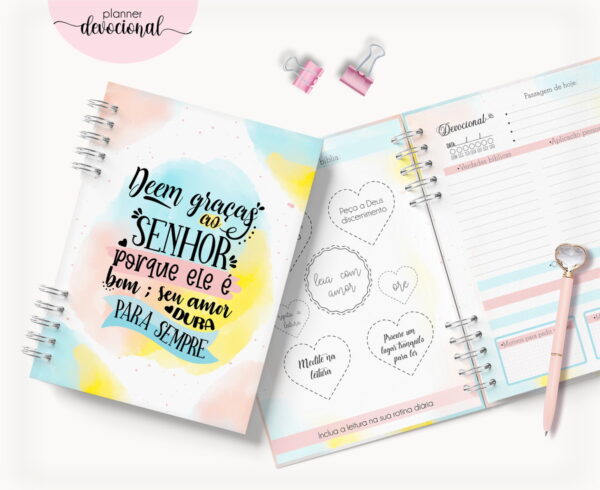 planner
devocional
Deem graças
ao
SENHOR
porque ele é
bom; seu amor
DURA
PARA SEMPRE
bíblia
Peça a Deus
discernimento
leia com
amor
ore
Medite na
leitura
Procure um
lugar tranquilo
para ler
Inclua a leitura na sua rotina diária.
Devocional
DATA: / /
Passagem de hoje:
Verdades bíblicas
Aplicação